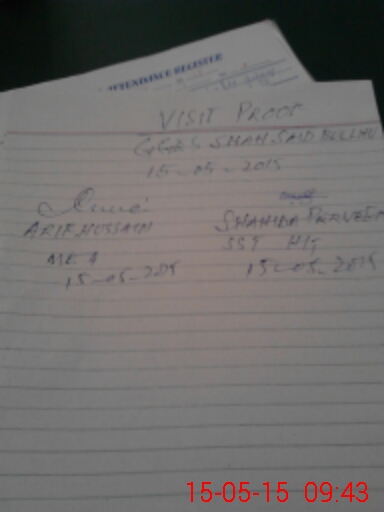 ATTENDANCE REGISTER
VISIT PROOF
GGES SHAH SAID BULLHU
15-05-2015
ARIF HUSSAIN
MEA
15-05-2015
SHAHIDA PARVEEN
SST HIT
15-05-2015
15-05-15 09:43